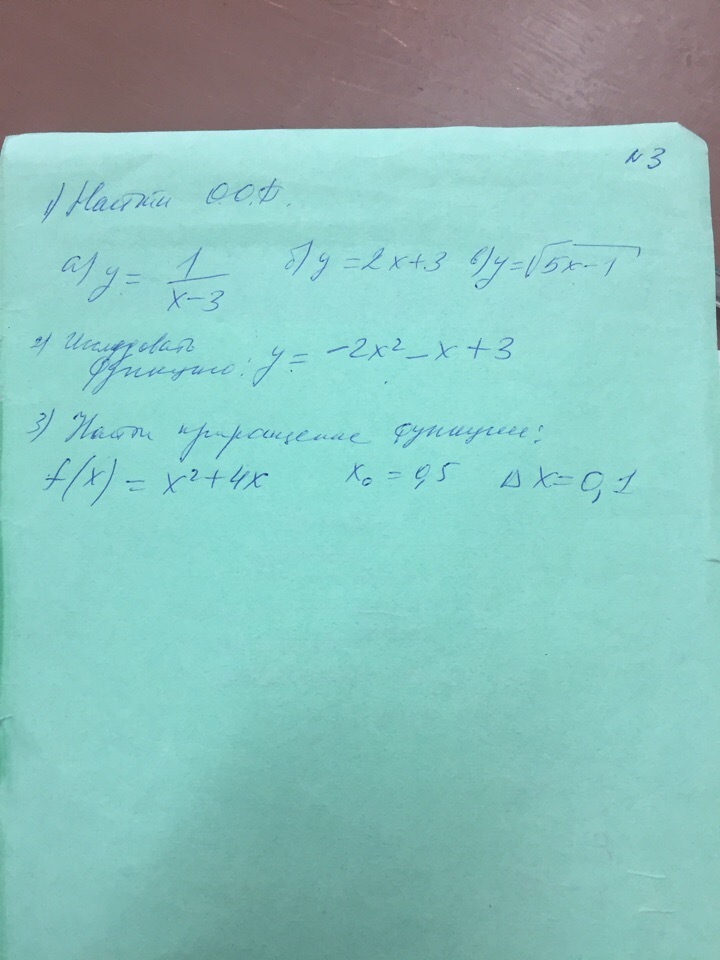 N3
1) Найти О.О.Ф.
а) y = 1/(x-3) б) y = 2x+3 в) y = √(5x-1)
2) Исследовать
функцию: y = -2x² - x + 3
3) Найти приращение функции:
f(x) = x² + 4x x₀ = 0,5 Δx = 0,1